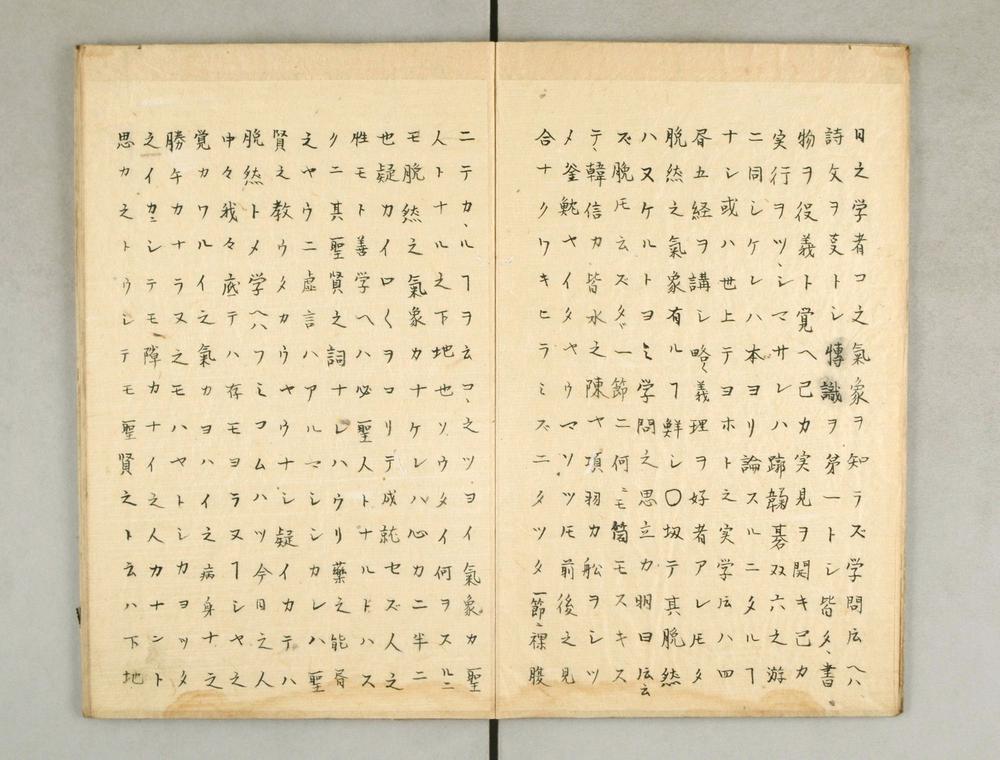 日之学者コ之氣象ヲ知ラズ学問広ヘハ
詩文ヲ㕝トシ博識ヲ第一トシ皆タヽ書
物ヲ役義ト覚ヘ己カ実見ヲ開キ己カ
実行ヲツヽシマサレハ蹄鞠碁双六之游
ニ同シケレハ本ヨリ論スルニタルヿ
ナシ或ハ世上テヨホト之実学広ハ四
昏五経ヲ講シ略〻義理ヲ好者アレ𪜈タ
脱然之氣象有ルヿ鮮シ〇扨テ其脱然
ハ又ケルトヨミ学問之思立カ明日広云
ズ脱𪜈云ズタヾ一節ニ何ニモ箇モスキス
テヽ韓信カ皆水之陳ヤ項羽カ舩ヲシツ
メ釜鮀ヤイタヤウマツツ𪜈前後之見
合ナクワキヒラミズニタツタ一節ニ裸腹
ニテカヽルヿヲ云コヽ之ツヨイ氣象カ聖
人トナル之下地也ソウタイ何ヲスルニ
モ脱然之氣象カナケレハ心カ二半ニ
也疑カイロ〱ヲコリテ成就セズ人之
性モト善学ヘハ必聖人トナルドハス
クニ其聖賢之詞ナレハウリ藥之能昏
之ヤウニ虚言ハアルマシシカレハ聖
賢之教ウタカウヤウナシ疑イカテハ
脱然トメ学ヘハフミコムハツ今日之人
中々我々底テハ存モヨラヌヿシヤ之
覚カワルイ之氣カヨハイ之病身ナ之
勝午カナラヌ之モハヤトシカヨツタ
之イカニシテモ障カナイ之人カナント
思カ之トウシテモ聖賢之ト云ハ下地